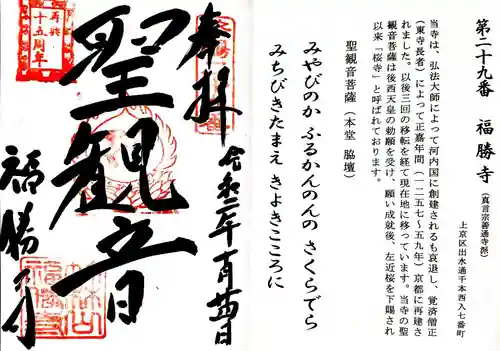 第二十九番 福勝寺(真言宗善通寺派)
上京区出水通千本西入七番町
当寺は、弘法大師によって河内国に創建されるも衰退し、覚済僧正
(東寺長者)によって正嘉年間(一二五七~五九年)京都に再建さ
れました。以後三回の移転を経て現在地に移っています。当寺の聖
観音菩薩は後西天皇の勅願を受け、願い成就後、左近桜を下賜され
以来「桜寺」と呼ばれております。
聖観音菩薩(本堂 脇壇)
みやびのか ふるかんのんの さくらでら
みちびきたまえ きよきこころに
奉拝
令和二年十一月十四日
聖観音
福勝寺
再興
十五周年